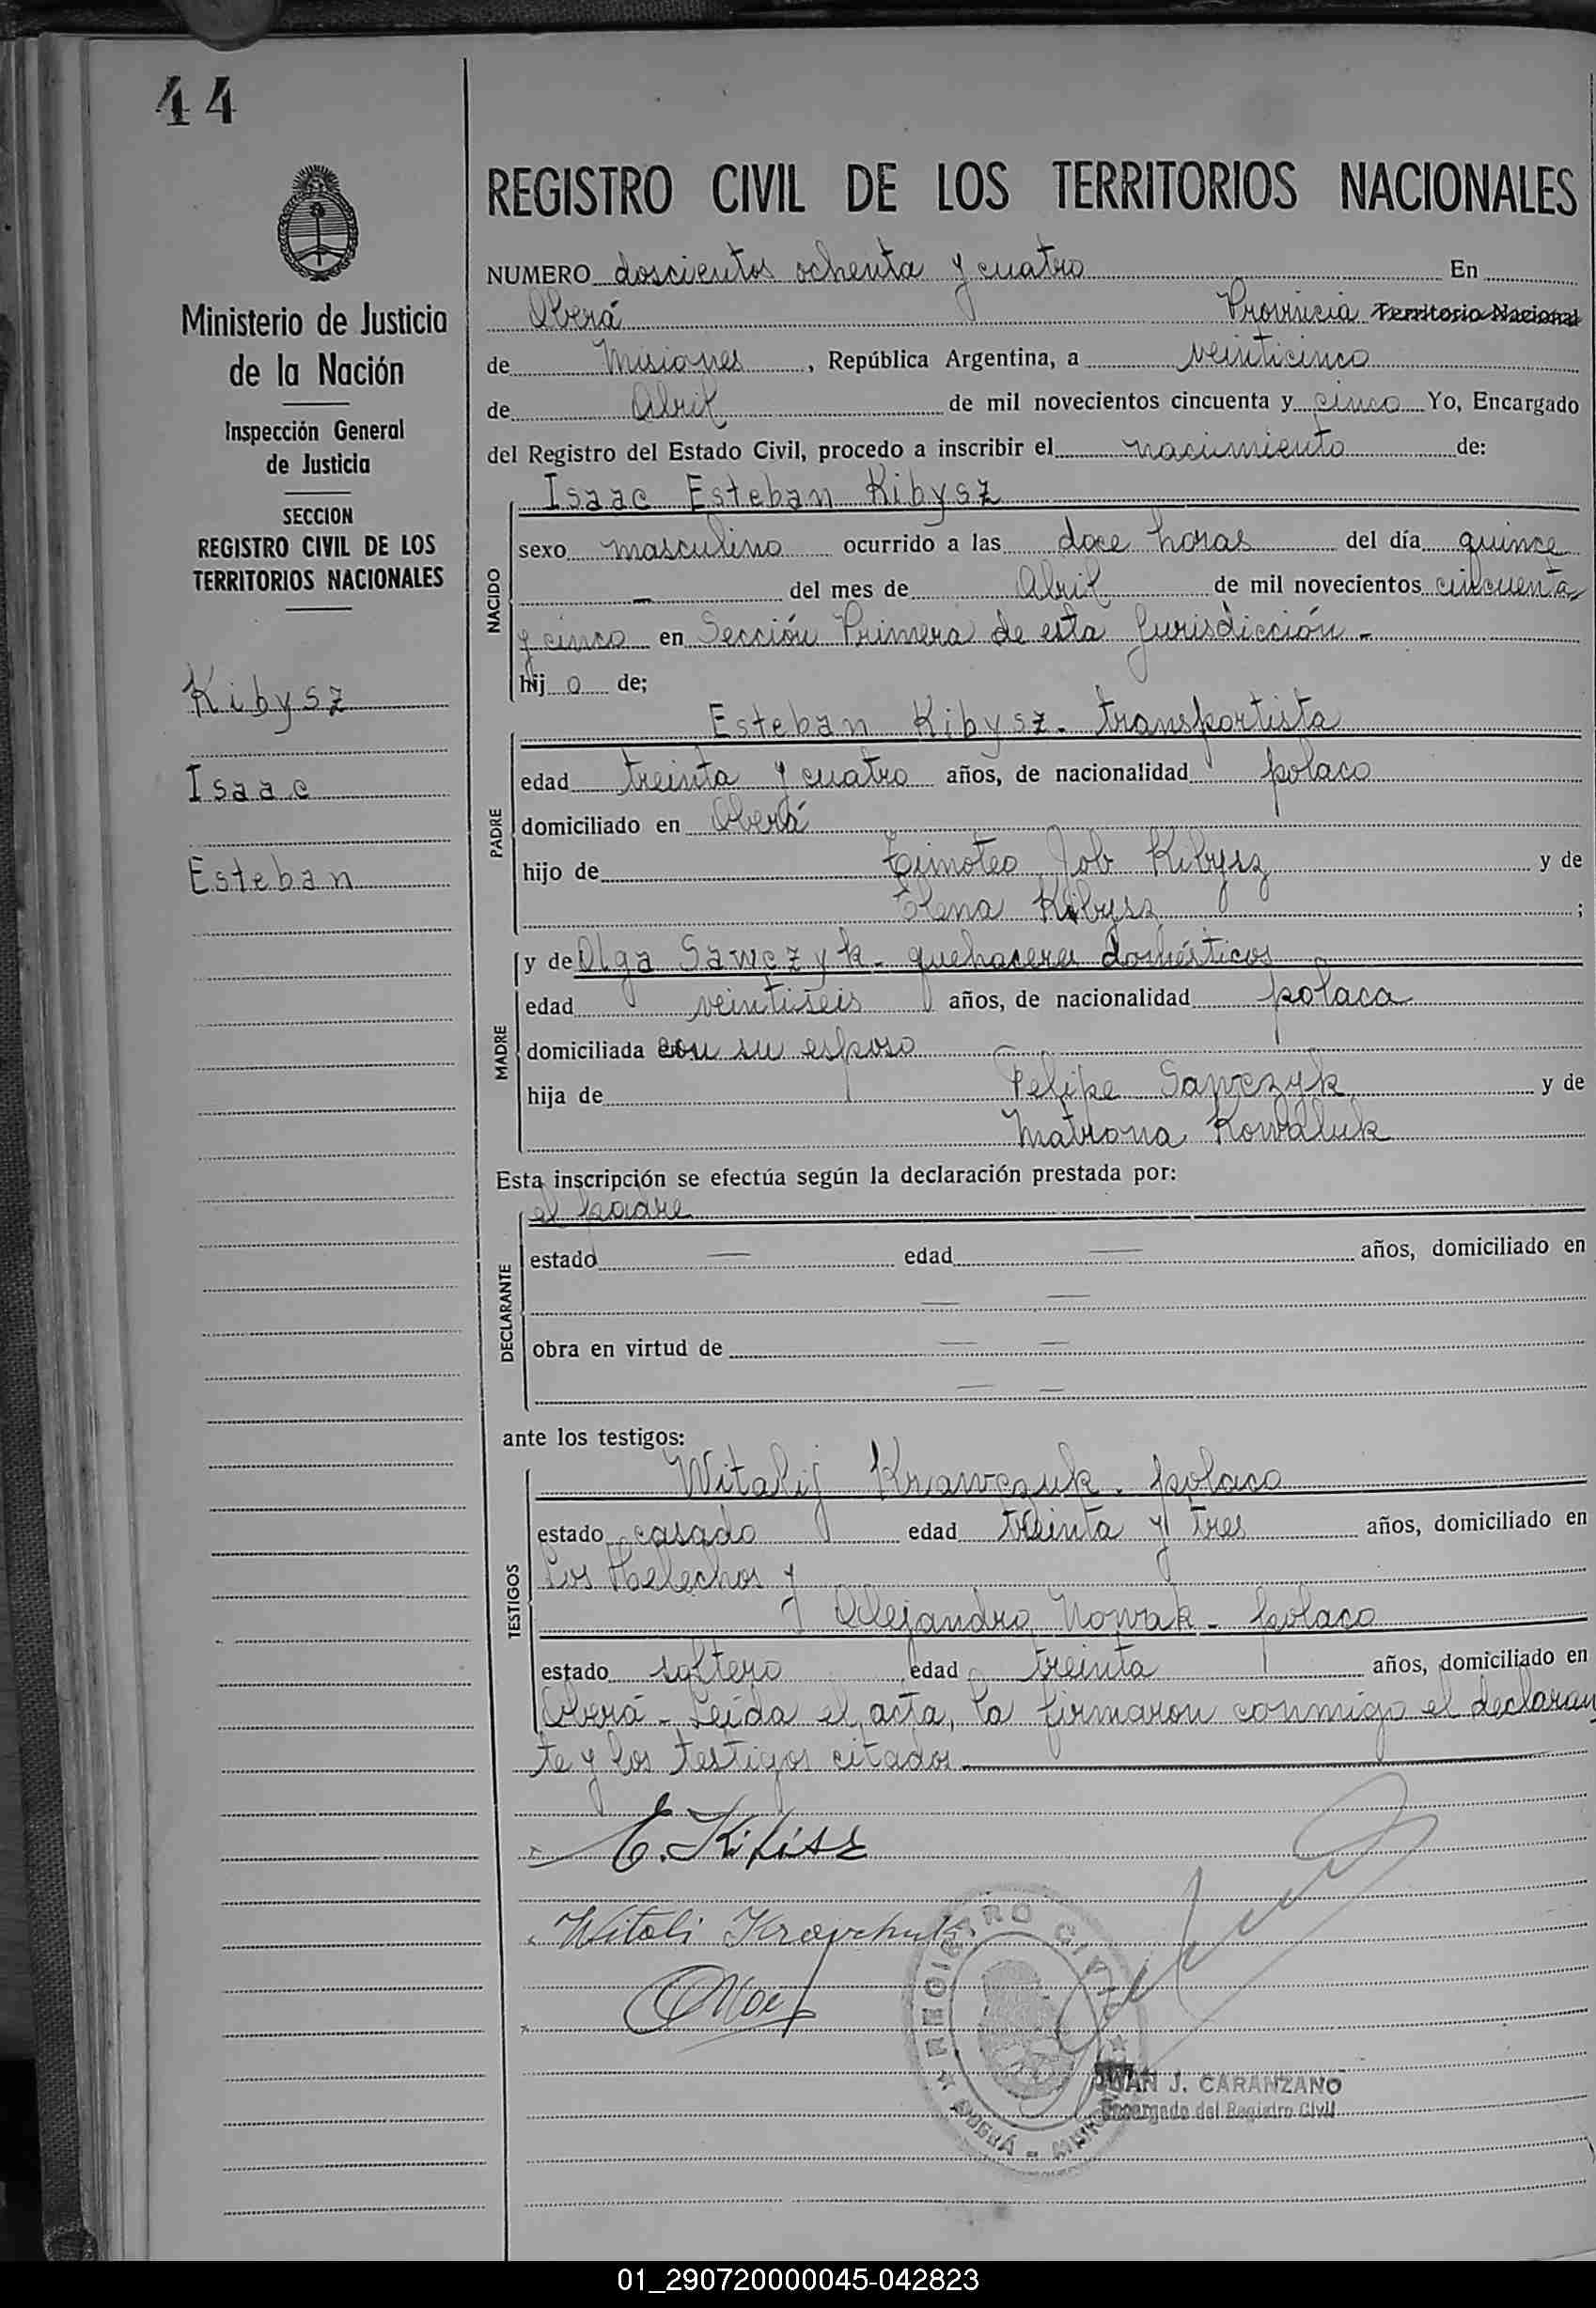 44
REGISTRO CIVIL DE LOS TERRITORIOS NACIONALES
Ministerio de Justicia
de la Nación
Inspección General
de Justicia
SECCION
REGISTRO CIVIL DE LOS
TERRITORIOS NACIONALES
Kibysz
Isaac
Esteban
NUMERO doscientos ochenta y cuatro En
Oberá Provincia Territorio Nacional
de Misiones, República Argentina, a veinticinco
de Abril de mil novecientos cincuenta y cinco Yo, Encargado
del Registro del Estado Civil, procedo a inscribir el nacimiento de:
NACIDO
Isaac Esteban Kibysz
sexo masculino ocurrido a las doce horas del día quince
— del mes de Abril de mil novecientos cincuenta
y cinco en Sección Primera de esta Jurisdicción -
hij o de;
PADRE
Esteban Kibysz - transportista
edad treinta y cuatro años, de nacionalidad polaco
domiciliado en Oberá
hijo de Timoteo Job Kibysz y de
Elena Kibysz ;
MADRE
y de Olga Sawczyk - quehaceres domésticos
edad veintiseis años, de nacionalidad polaca
domiciliada con su esposo
hija de Felipe Sawczyk y de
Matrona Kowaluk
Esta inscripción se efectúa según la declaración prestada por:
DECLARANTE
el padre
estado — edad — años, domiciliado en
— —
obra en virtud de — —
— —
ante los testigos:
TESTIGOS
Witalij Krawczuk - polaco
estado casado edad treinta y tres años, domiciliado en
Los Helechos y
Alejandro Nowak - polaco
estado soltero edad treinta años, domiciliado en
Oberá - Leída el acta, la firmaron conmigo el declaran
te y los testigos citados.
E. Kibisz
Witali Krawchuk
REGISTRO CIVIL
JUAN J. CARANZANO
Encargado del Registro Civil
01_290720000045-042823